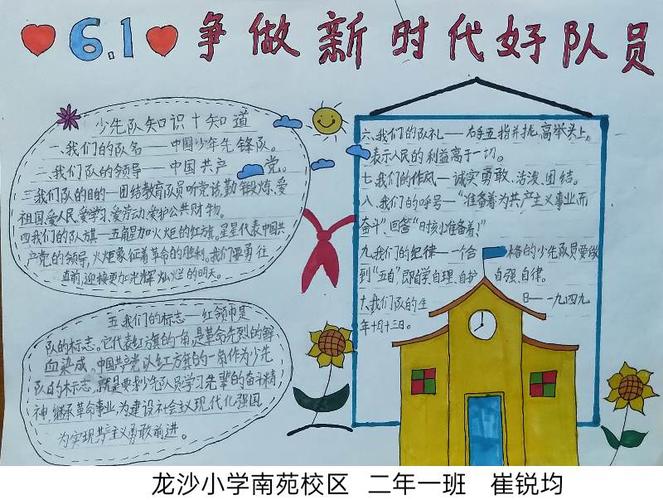 6.1 争做新时代好队员
少先队知识十知道
一、我们的队名——中国少年先锋队。
二、我们队的领导——中国共产党。
三、我们队的目的—团结教育队员听党话,勤锻炼、爱
祖国、爱人民、爱学习、爱劳动、爱护公共财物。
四、我们的队旗—五角星加火炬的红旗。星星代表中国共
产党的领导,火炬象征着革命的胜利。我们要勇往
直前,迎接更加光辉灿烂的明天。
五、我们的标志—红领巾是
队的标志,它代表红旗的一角,是革命先烈的鲜
血染成。中国共产党以红方旗的一角作为少先
队的标志,就是要少先队员学习先辈的奋斗精
神,继承革命事业,为建设社会主义现代化强国
为实现共产主义勇敢前进。
六、我们的队礼——右手五指并拢,高举头上。
表示人民的利益高于一切。
七、我们的作风—诚实勇敢、活泼、团结。
八、我们的呼号—"准备着为共产主义事业而
奋斗"回答"时刻准备着!"
九、我们的纪律—一个合格的少先队员要做
到"五自"即自学自理、自护、自强、自律。
十、我们队的生日—一九四九
年十月十三日。
龙沙小学南苑校区 二年一班 崔锐均